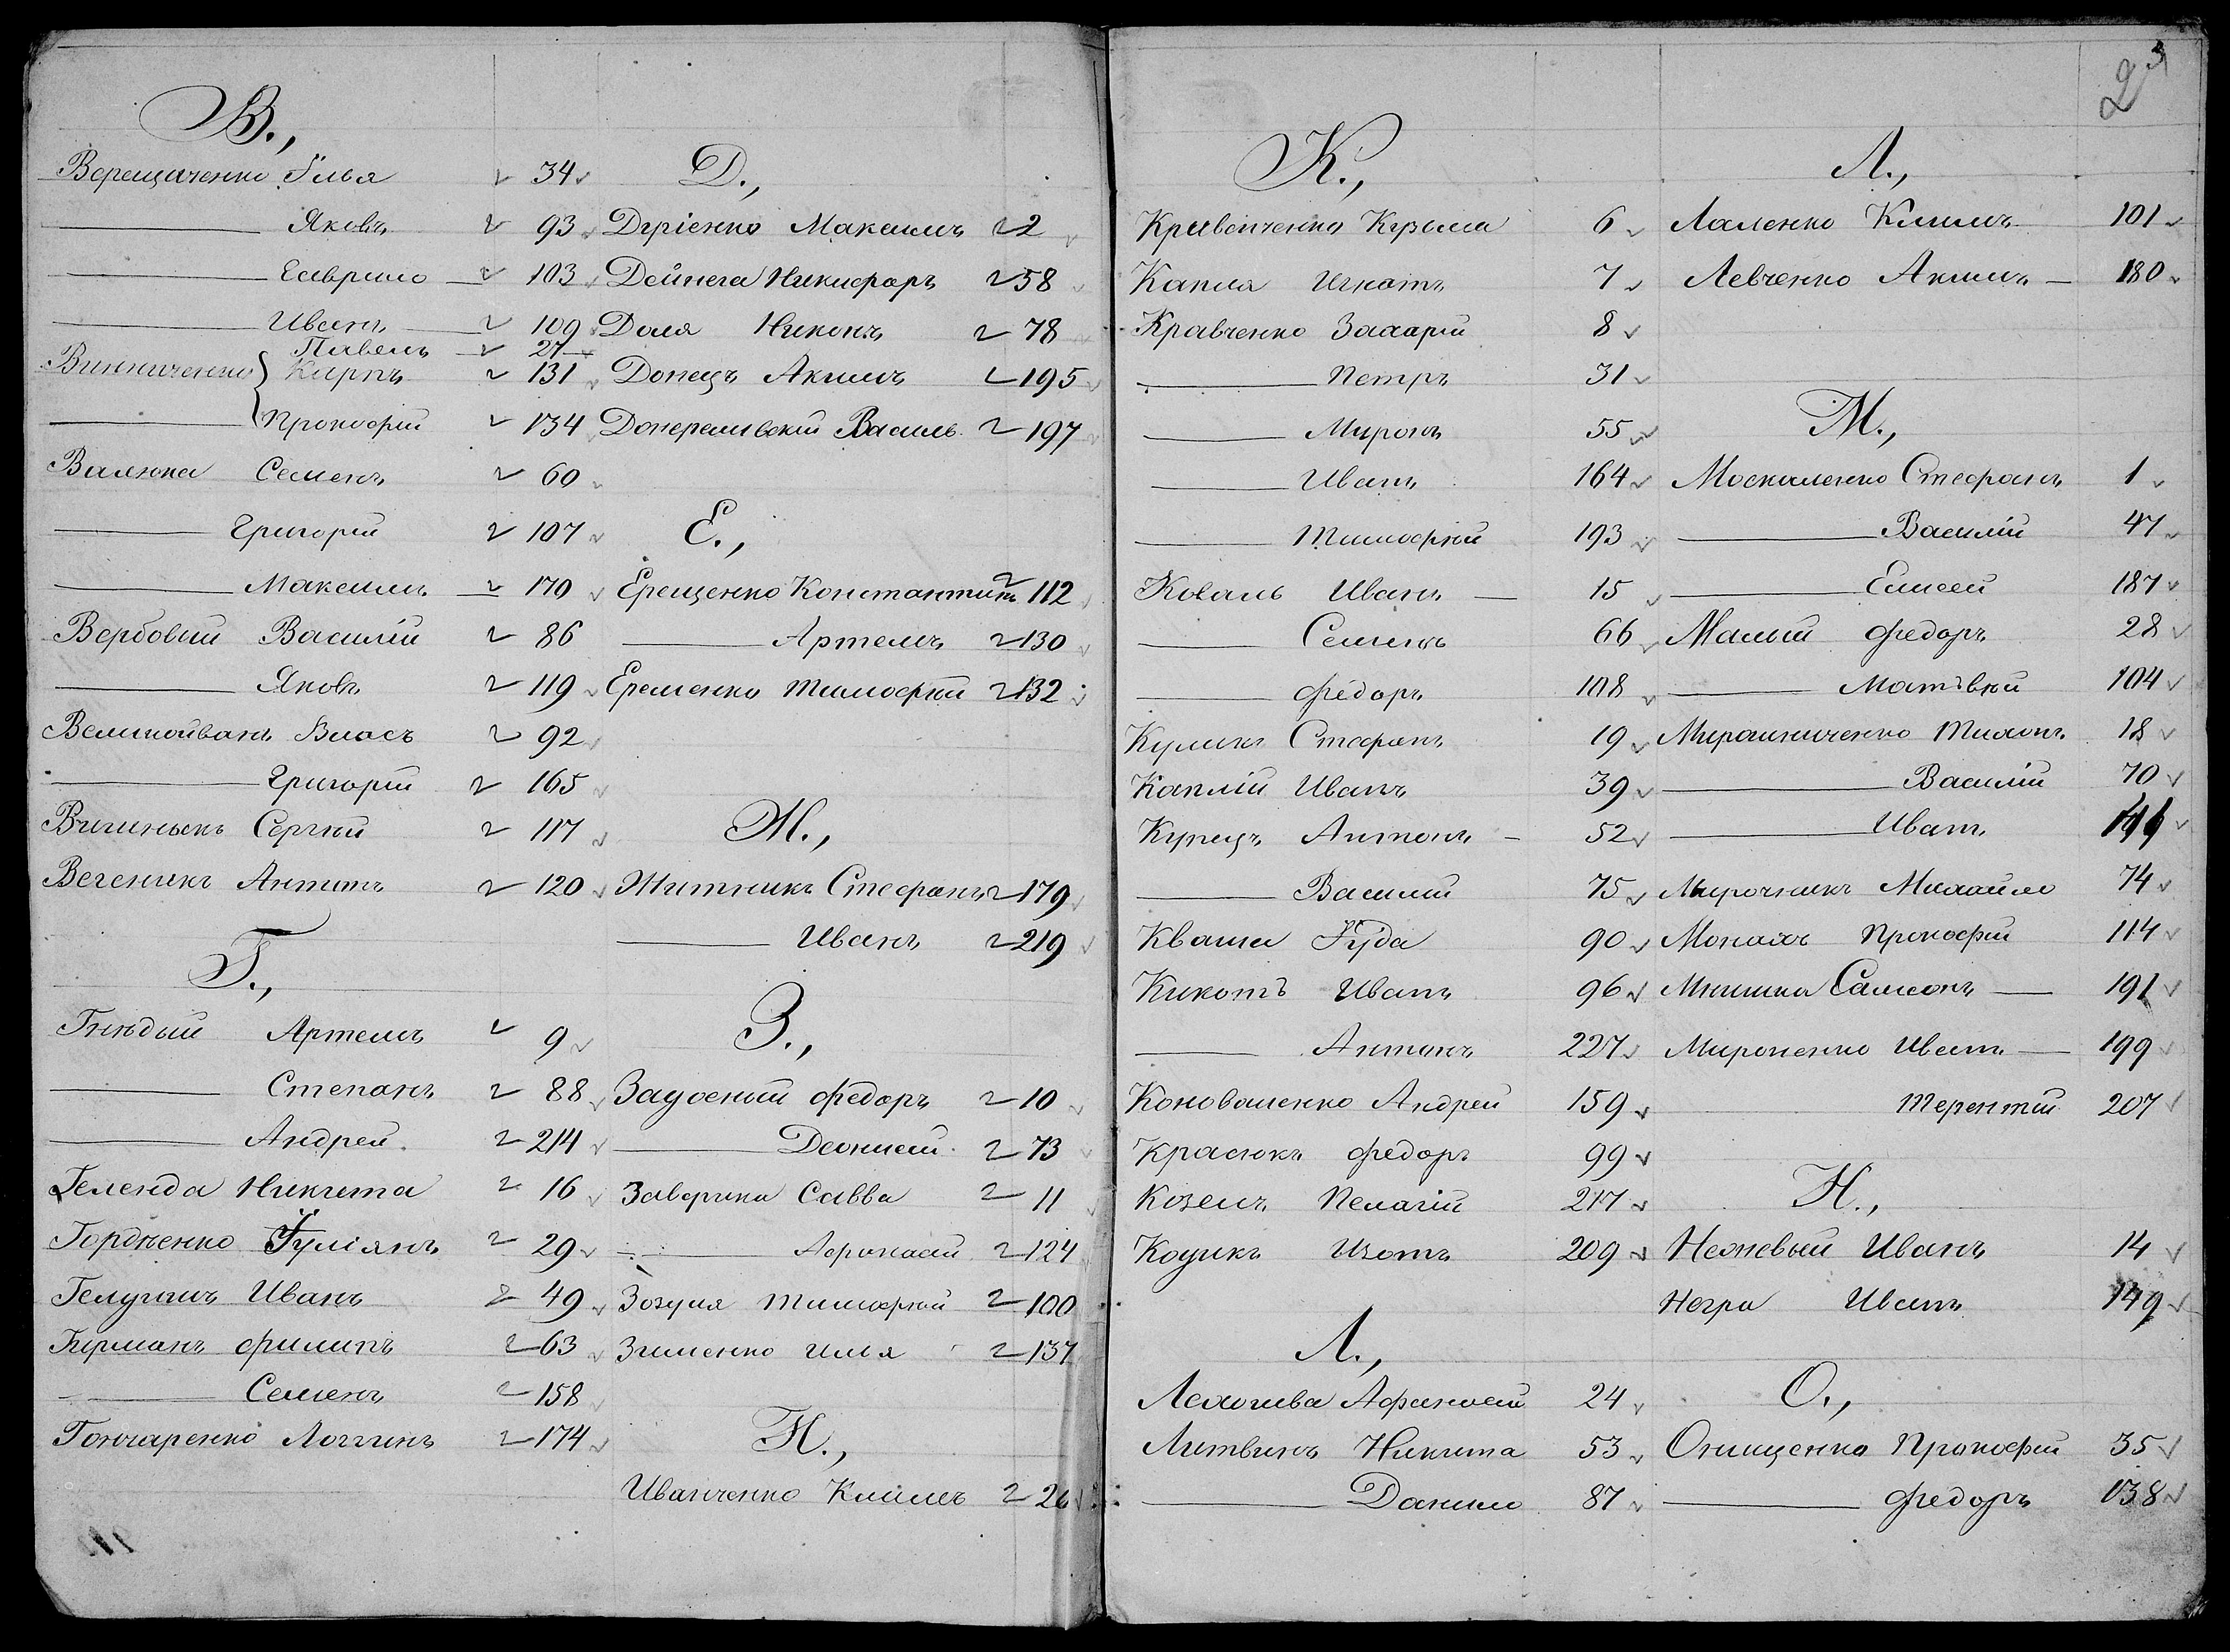 В.,
Верещаченко Илья 34
——— Яковъ 93
——— Гаврило 103
——— Иванъ 109
Павелъ 27
Винниченко Кирпъ 131
——— Прокофій 134
Валюка Семенъ 60
——— Григорій 107
——— Максимъ 170
Вербовий Василій 86
——— Яковъ 119
Великоиванъ Власъ 92
——— Григорій 165
Сергѣй 117
Веченикъ Антонъ 120
Г.,
Гнѣдый Артемъ 9
——— Степанъ 88
——— Андрей 214
Геленда Никита 16
Гордѣенко Іуліянъ 29
Иванъ 49
Гирманъ Филипъ 63
——— Семенъ 158
Гончаренко Логгинъ 174
Д.,
Дуріенко Максимъ 2
Дейнега Никифоръ 58
Доля Никонъ 78
Донецъ Акимъ 195
Василь 197
Е.,
Ерещенко Константинъ 112
——— Артемъ 130
Еременко Тимофѣй 132
Ж.,
Житникъ Стефанъ 179
——— Иванъ 219
З.,
Федоръ 10
——— Деонисій 73
Заверика Савва 11
——— Афонасій 124
Зозуля Тимофѣй 100
Зименко Илья 137
И.,
Иванченко Климъ 26
2 3
К.,
Кривенченко Курыла 6
Капля Игнатъ 7
Кравченко Захарій 8
——— Петръ 31
——— Миронъ 55
——— Иванъ 164
——— Тимофѣй 193
Коваль Иванъ 15
——— Семенъ 66
——— Федоръ 108
Куликъ Стефанъ 19
Каплій Иванъ 39
Купецъ Антонъ 52
——— Василій 75
Кваша Іуда 90
Кикотъ Иванъ 96
——— Антонъ 227
Коноваленко Андрей 159
Красюкъ Федоръ 99
Козелъ Пелагій 217
Коцикъ Изотъ 209
Л.,
Афанасій 24
Литвинъ Никита 53
——— Данило 87
Л.,
Лаленко Климъ 101
Левченко Акимъ 180
М.,
Москаленко Стефанъ 1
——— Василій 47
——— Елисей 187
Малый Федоръ 28
——— Матѣвѣй 104
Мирошниченко Тихонъ 18
——— Василій 70
——— Иванъ
Мирочникъ Михайло 74
Монахъ Прокофій 114
Самсонъ 191
Мироненко Иванъ 199
Терентій 207
Н.,
Нежевый Иванъ 14
Негра Иванъ 149
О.,
Онищенко Прокофій 35
——— Федоръ 138